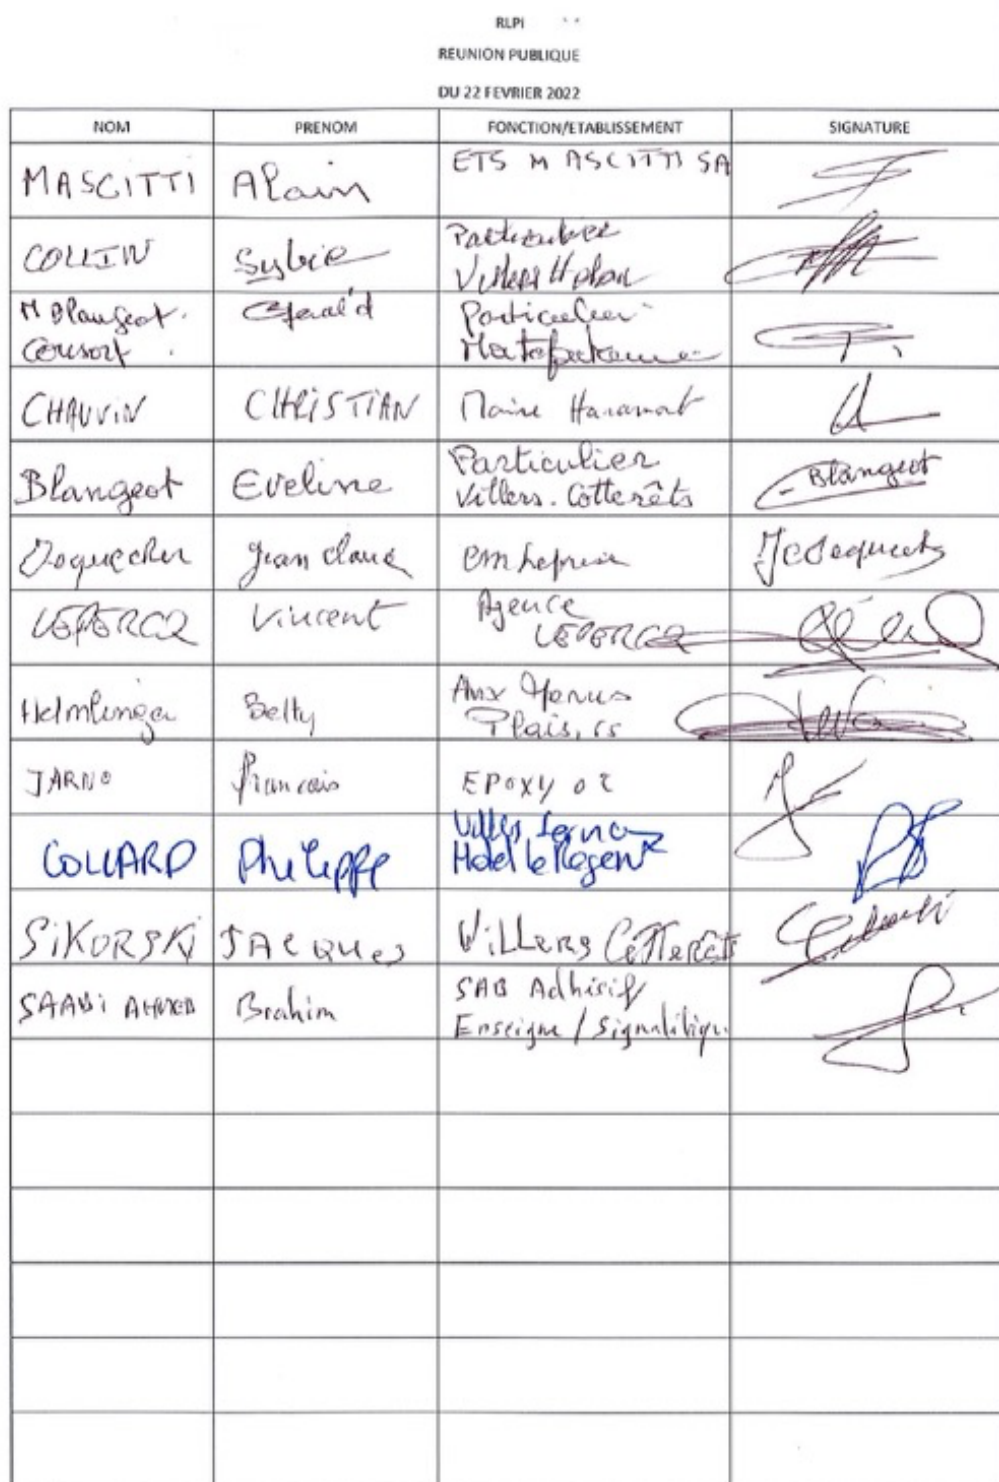 RLPi
REUNION PUBLIQUE
DU 22 FEVRIER 2022
NOM PRENOM FONCTION/ETABLISSEMENT SIGNATURE
MASCITTI Alain ETS MASCITTI SA
COLLIN Sylvie Particulier
Villers
M Blangeot. Gérald Particulier
Consort.
CHAUVIN CHRISTIAN Maire Haramont
Blangeot Eveline Particulier Blangeot
Villers-Cotterêts
Jean Claude
LEPERCQ Vincent Agence
LEPERCQ
Helmlinger Betty Aux Menus
Plaisirs
JARNO Francois EPOXY 02
COLLARD Philippe
Hotel le Regent
SiKORSKi JACQUES ViLLERS COTTERêTS
SAADi AHMED Brahim SAB Adhésif
Enseigne / Signalétique